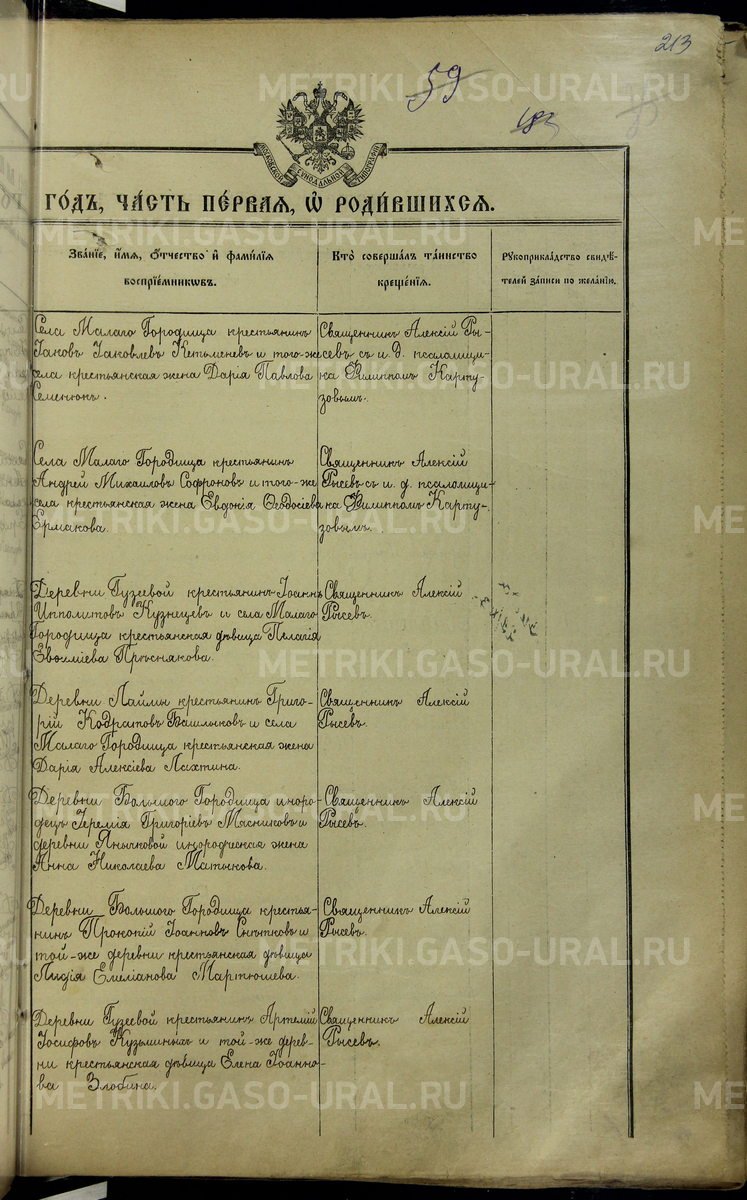 213
59
183
МОСКОВСКОЙ СѴНОДАЛЬНОЙ ТИПОГРАФІИ
ГО́ДЪ, ЧА́СТЬ ПЕ́РВАЯ, Ѡ҆ РОДИ́ВШИХСЯ.
Зва́нїе, и҆́мя, ѻ҆́тчество и҆ фами́лїя
воспрїе́мниковъ.
Кто̀ соверша́лъ та́инство
креще́нїя.
Рꙋкоприкла́дство свидѣ́-
телей за́писи по жела́нїю.
Села Малаго Городища крестьянинъ
Іаковъ Іаковлевъ Кетьменевъ и того-же
села крестьянская жена Дарія Павлова
Семенюкъ.
Священникъ Алексій Ры-
севъ съ и. д. псаломщи-
ка Филиппомъ Карту-
зовымъ.
Села Малаго Городища крестьянинъ
Андрей Михаиловъ Софроновъ и того-же
села крестьянская жена Евдокія Ѳеодосіева
Ермакова.
Священникъ Алексій
Рысевъ съ и. д. псаломщи-
ка Филиппомъ Карту-
зовымъ.
Деревни Гузеевой крестьянинъ Іоаннъ
Ипполитовъ Кузнецевъ и села Малаго
Городища крестьянская дѣвица Пелагія
Евфиміева Прѣснякова.
Священникъ Алексій
Рысевъ.
Деревни Лаймы крестьянинъ Григо-
рій Кодратовъ Башлыковъ и села
Малаго Городища крестьянская жена
Дарія Алексіева Лахтина.
Священникъ Алексій
Рысевъ.
Деревни Большого Городища иноро-
децъ Іеремія Григоріевъ Мясниковъ и
деревни Янычковой инородческая жена
Анна Николаева Матыкова.
Священникъ Алексій
Рысевъ.
Деревни Большого Городища крестья-
нинъ Прокопій Іоанновъ Снѣтковъ и
той-же деревни крестьянская дѣвица
Лидія Емеліанова Мартюшева.
Священникъ Алексій
Рысевъ.
Деревни Гузеевой крестьянинъ Артемій
Іосифовъ Кузьминыхъ и той-же дерев-
ни крестьянская дѣвица Елена Іоанно-
ва Злобина.
Священникъ Алексій
Рысевъ.
METRIKI.GASO-URAL.RU